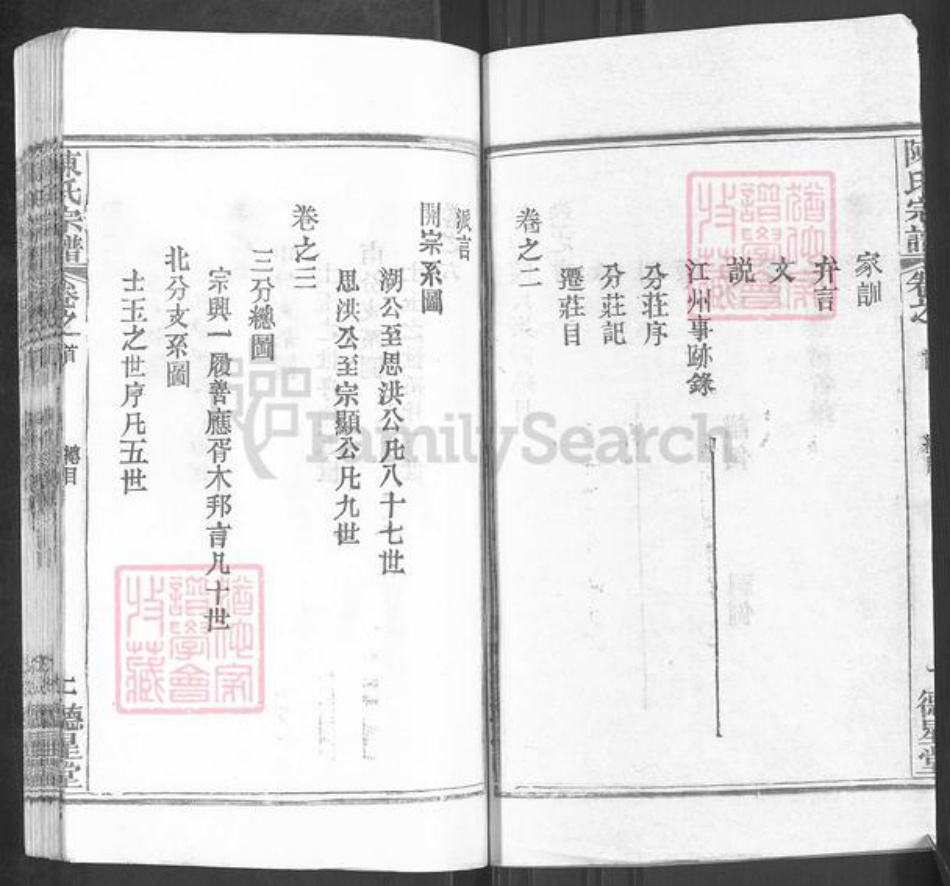 陳氏宗譜
卷之
德星堂
家訓
弁言
文
説
江州事跡錄
分莊序
分莊記
遷莊目
卷之二
派言
開宗系圖
湖公至思洪公凡八十七世
思洪公至宗顯公凡九世
卷之三
三分總圖
宗興一履善應胥木邦育凡十世
北分支系圖
士玉之世序凡五世
陳氏宗譜
卷之首
總目
二
德星堂
猶他家譜學會收藏
猶他家譜學會收藏
FamilySearch